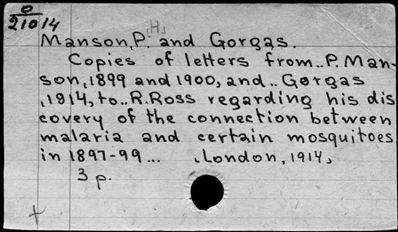 0
21014
[H]
Manson, P. and Gorgas.
Copies of letters from..P. Man-
son, 1899 and 1900, and.. Gorgas
, 1914, to.. R. Ross regarding his dis
covery of the connection between
malaria and certain mosquitoes
in 1897-99... London, 1914,
3 p.